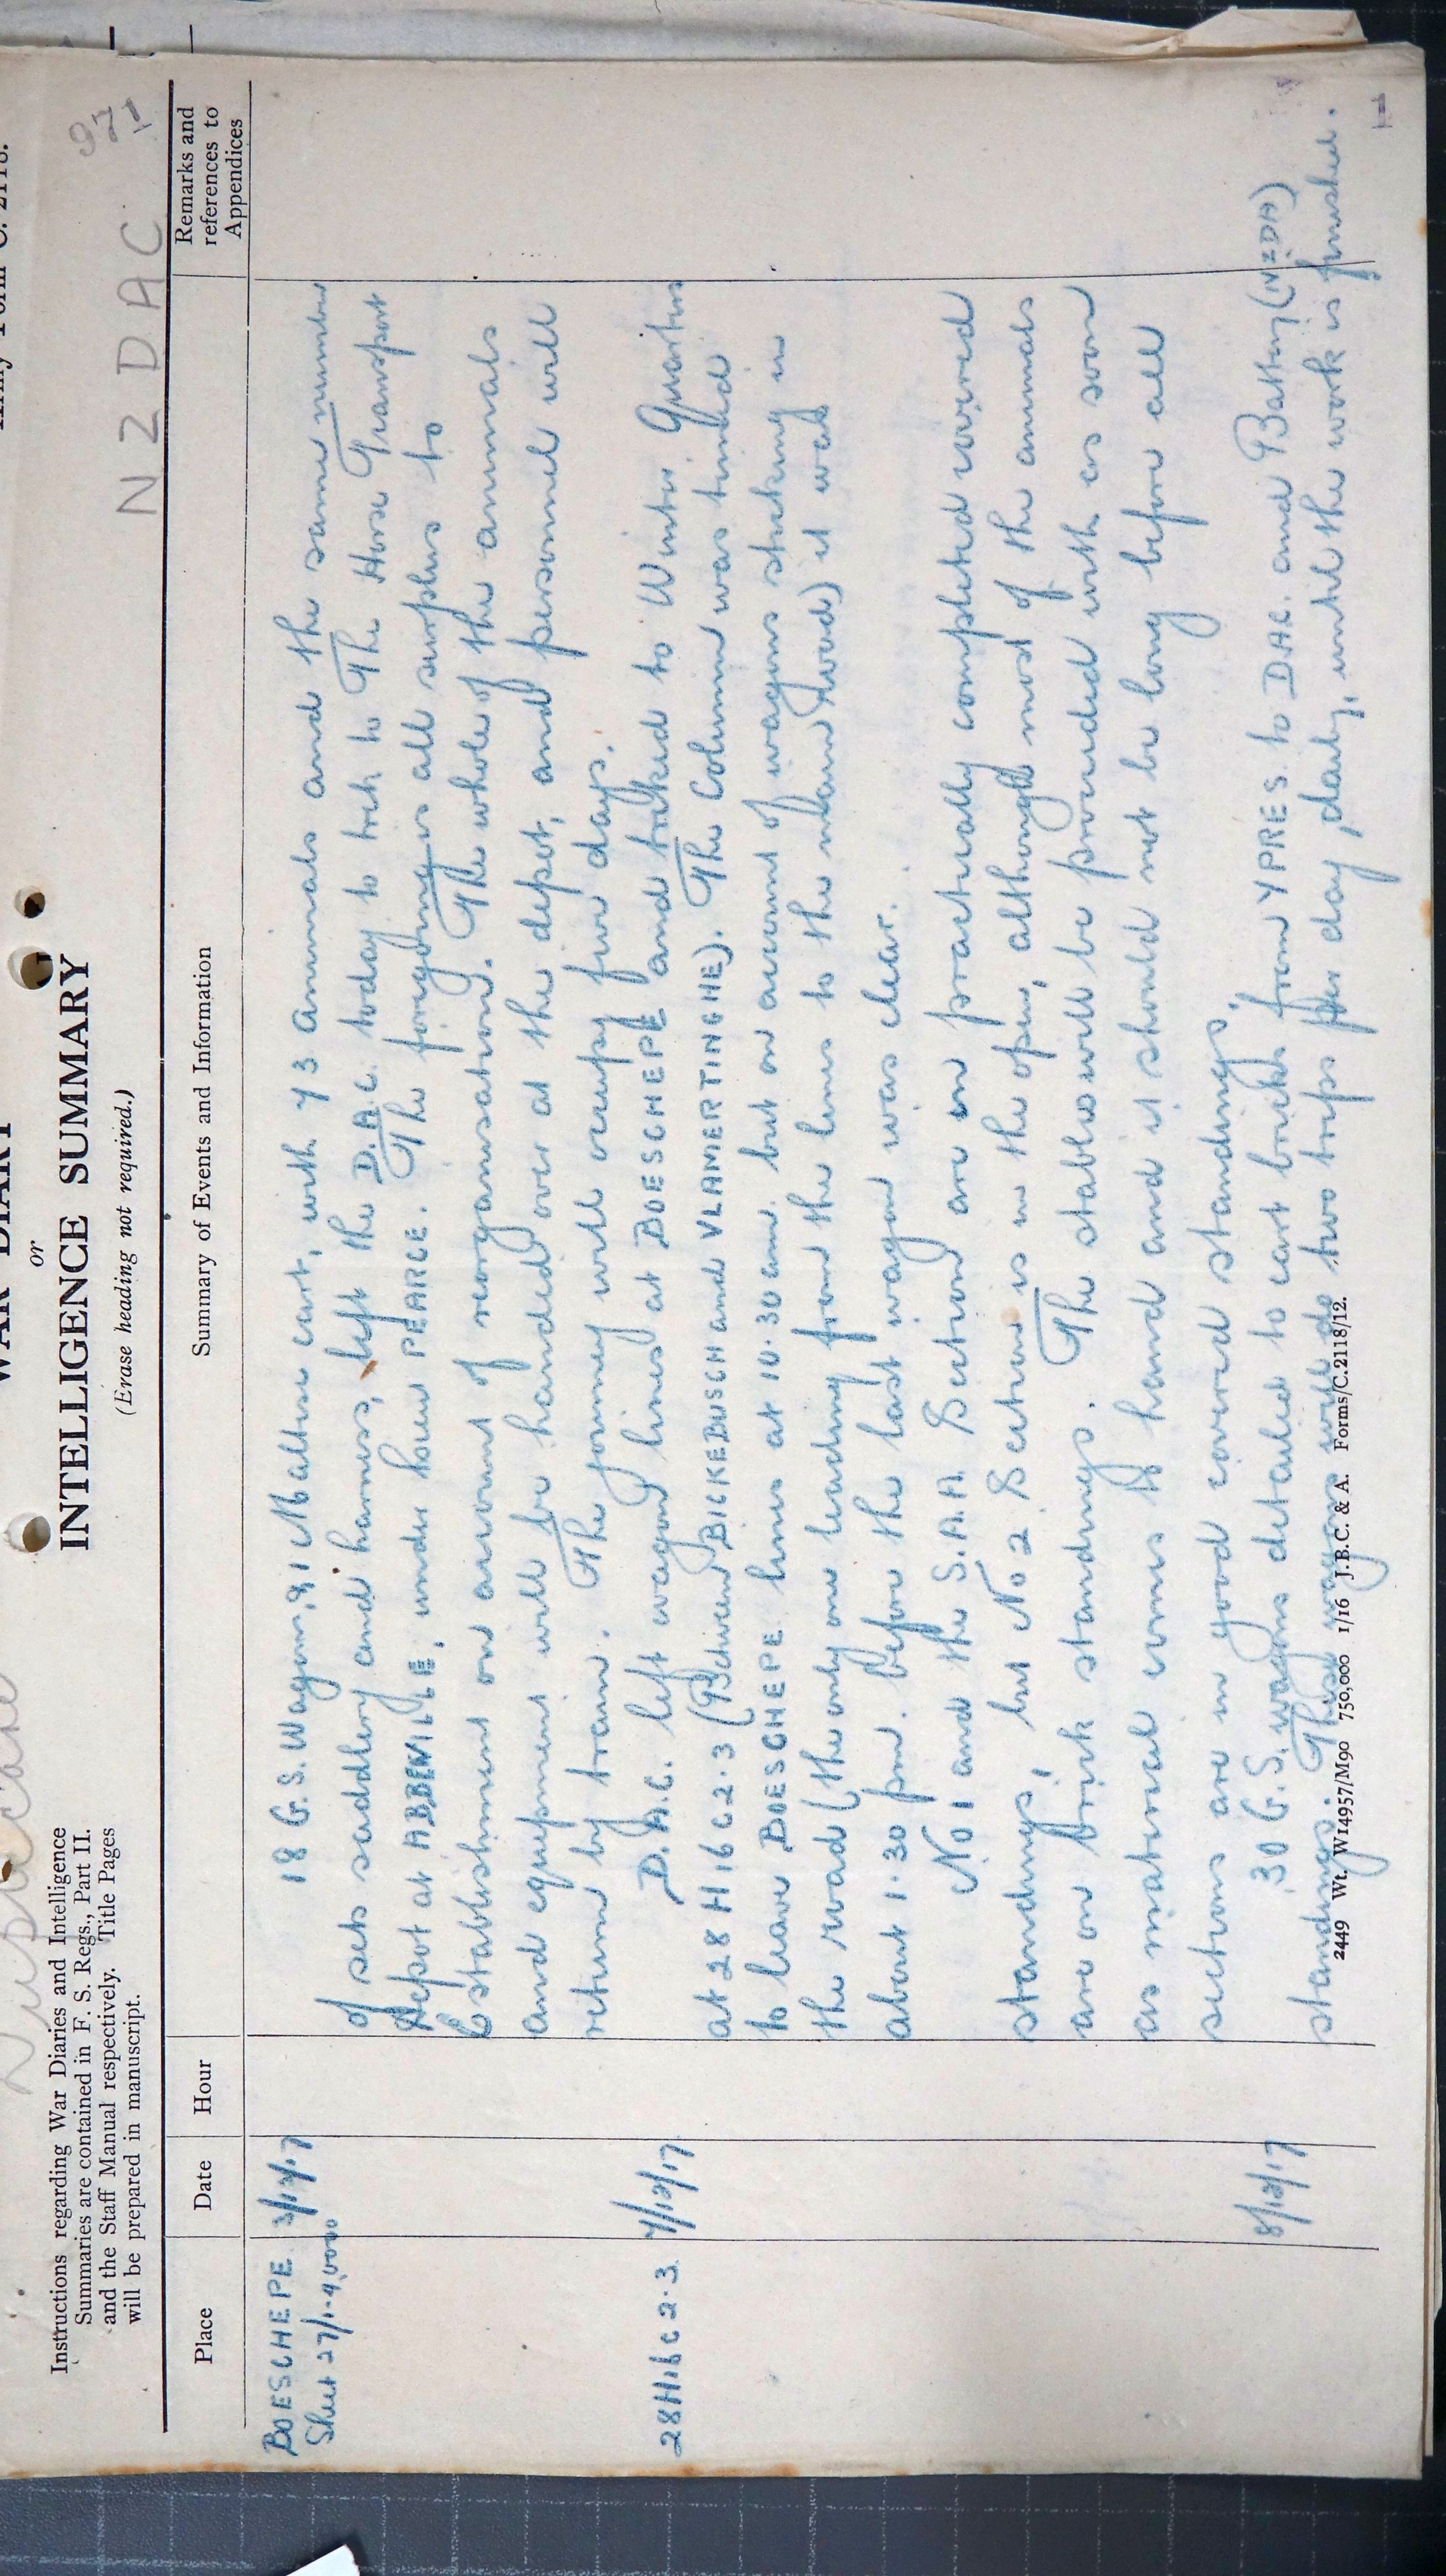 Army Form C. 2118.
WAR DIARY
or
INTELLIGENCE SUMMARY
(Erase heading not required.)
Duplicate
971
N Z D A C
Instructions regarding War Diaries and Intelligence
Summaries are contained in F. S. Regs., Part II.
and the Staff Manual respectively. Title Pages
will be prepared in manuscript.
Place Date Hour Summary of Events and Information Remarks and references to Appendices
BOESCHEPE 3/12/17 18 G.S. Wagons, & 1 Maltese cart, with 73 animals and the same number
Sheet 27/1-40000 of sets saddlery and harness, left the D.A.C. today to trek to The Horse Transport
Depot at ABBEVILLE, under Lieut PEARCE. The foregoing is all surplus to
Establishment on account of reorganisation. The whole of the animals
and equipment will be handed over at the depot, and personnel will
return by train. The journey will occupy five days.
28 H16 C 2.3 4/12/17 D.A.C. left wagon lines at BOESCHEPE and trekked to Winter Quarters
at 28 H 16 C 2.3 (Between DICKEBUSCH and VLAMERTINGHE). The Column was timed
to leave BOESCHEPE lines at 10.30 am. but on account of wagons sticking in
the road (the only one leading from the lines to the main road) it was
about 1.30 pm. before the last wagon was clear.
No 1 and the S.A.A. Section are in practically completed covered
standings, but No 2 Section is in the open, although most of the animals
are on brick standings. The stables will be proceeded with as soon
as material comes to hand and it should not be long before all
sections are in good covered standings.
8/12/17 30 G.S. wagons detailed to cart bricks from YPRES to DAC. and Battery (NZDA)
standings. This wagons will do two trips per day, daily, until the work is finished.
2449 Wt. W14957/M90 750,000 1/16 J.B.C. & A. Forms/C.2118/12.
1